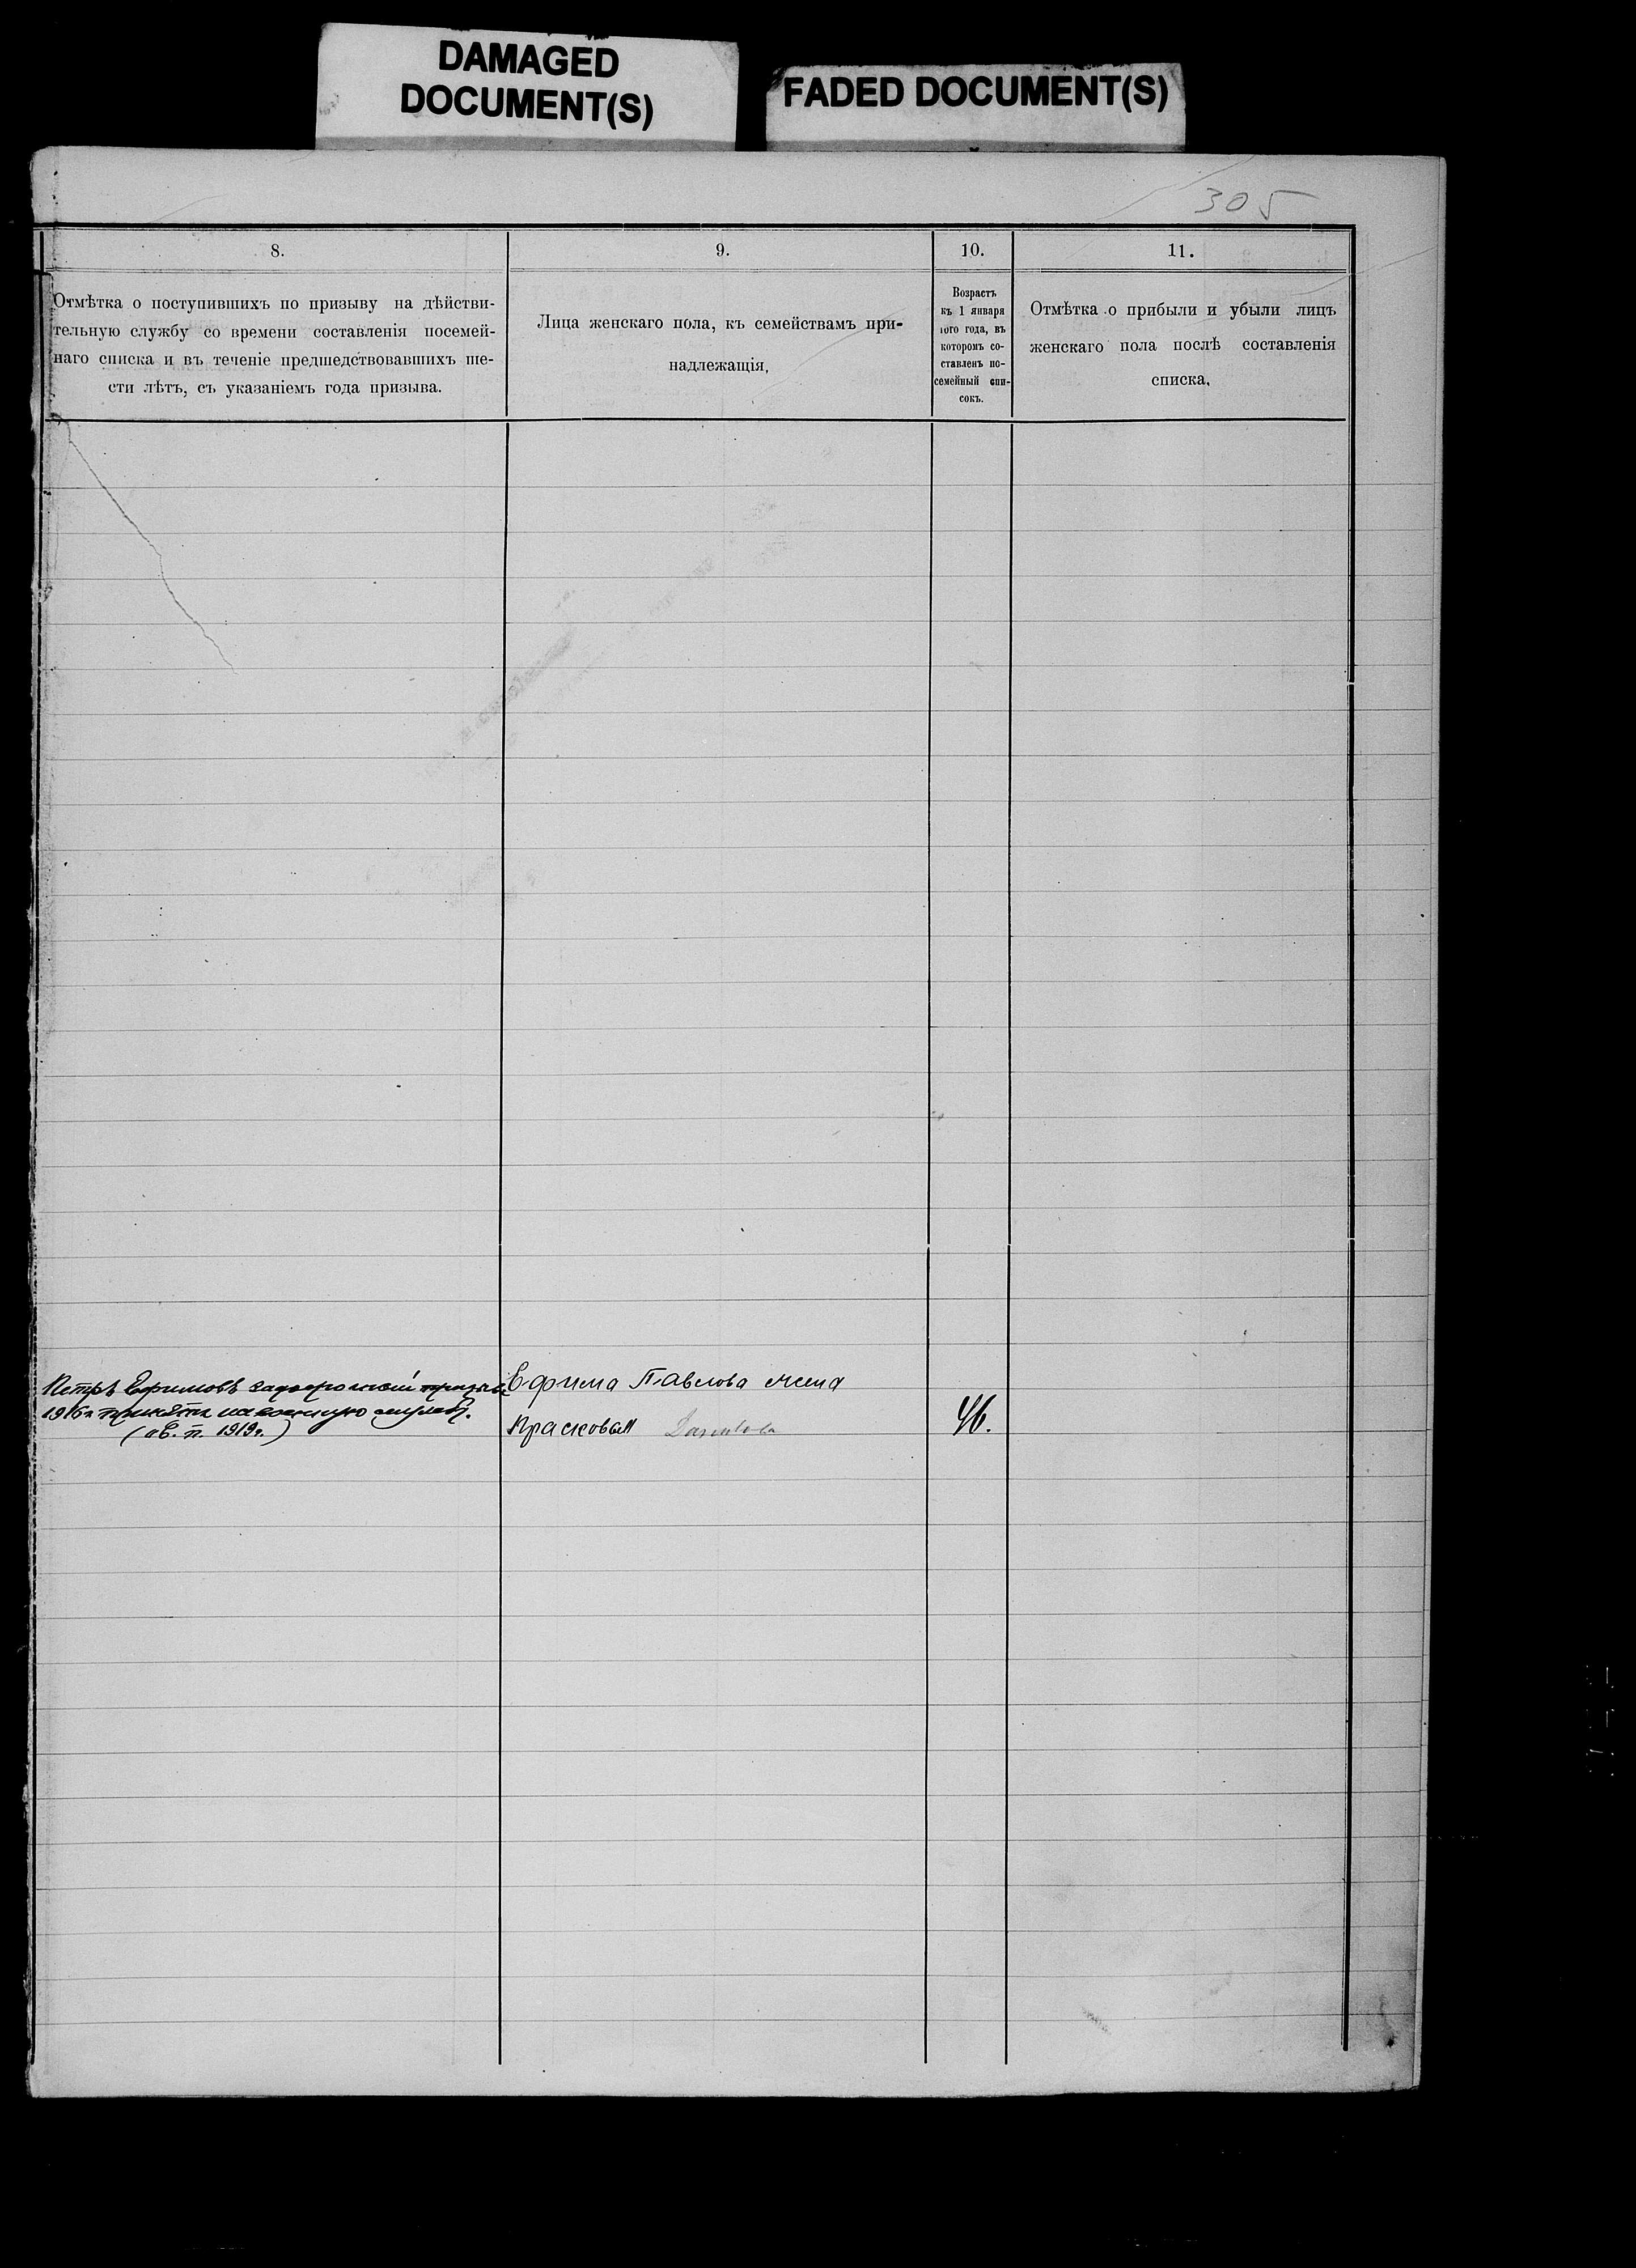 DAMAGED
DOCUMENT(S)
FADED DOCUMENT(S)
305
8.
Отмѣтка о поступившихъ по призыву на дѣйстви-
тельную службу со времени составленія посемей-
наго списка и въ теченіе предшедствовавшихъ ше-
сти лѣтъ, съ указаніемъ года призыва.
9.
Лица женскаго пола, къ семействамъ при-
надлежащія,
10.
Возрастъ
къ 1 января
того года, въ
которомъ со-
ставленъ по-
семейный спи-
сокъ.
11.
Отмѣтка о прибыли и убыли лицъ
женскаго пола послѣ составленія
списка,
Петръ Ефимовъ
1916 г принятъ на военную службу.
(1919г.)
Ефима Павлова жена
Прасковья
46.